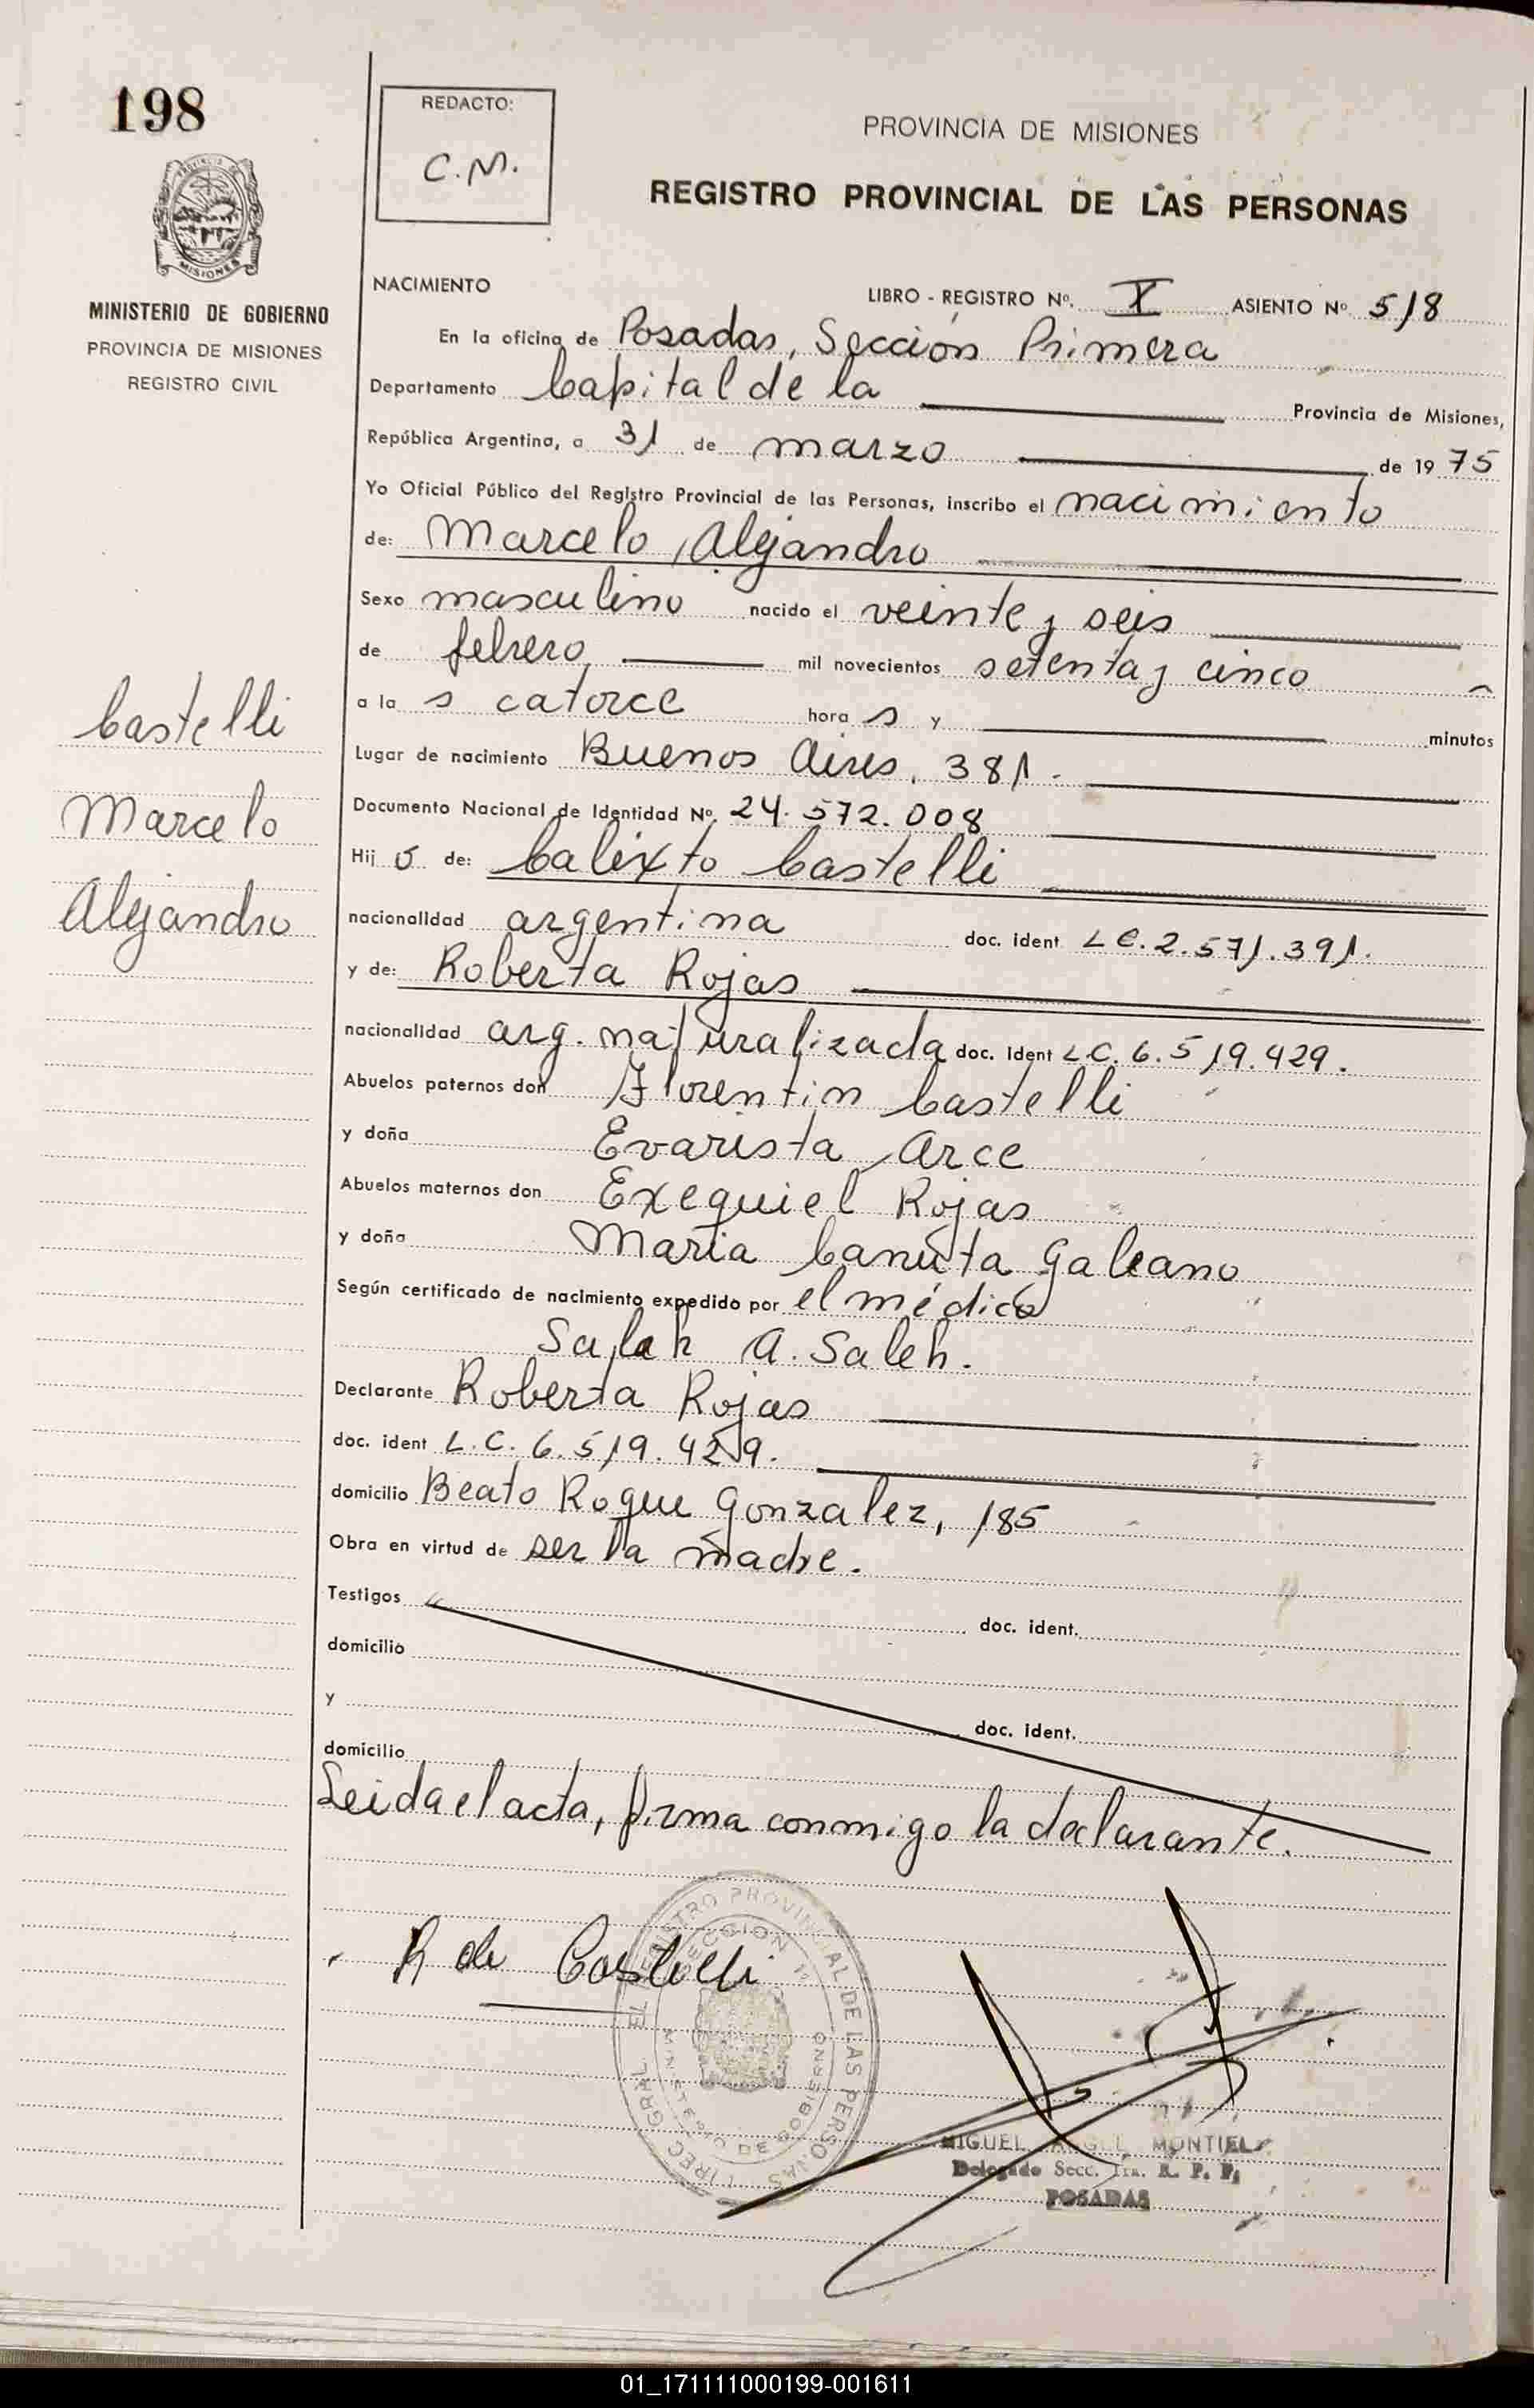 198
REDACTO:
C.M.
PROVINCIA DE MISIONES
REGISTRO PROVINCIAL DE LAS PERSONAS
MISIONES
MINISTERIO DE GOBIERNO
PROVINCIA DE MISIONES
REGISTRO CIVIL
NACIMIENTO
LIBRO - REGISTRO Nº. X ASIENTO Nº 518
En la oficina de Posadas, Sección Primera
Departamento Capital de la Provincia de Misiones,
República Argentina, a 31 de marzo de 1975
Yo Oficial Público del Registro Provincial de las Personas, inscribo el nacimiento
de: Marcelo Alejandro
Sexo masculino nacido el veinte y seis
de febrero mil novecientos setenta y cinco
a la s catorce hora s y minutos
Lugar de nacimiento Buenos Aires, 381.
Documento Nacional de Identidad Nº. 24.572.008
Hij o de: Calixto Castelli
nacionalidad argentina doc. ident L.E. 2.571.391.
y de: Roberta Rojas
nacionalidad arg. naturalizada doc. ident L.C. 6.519.429.
Abuelos paternos don Florentin Castelli
y doña Evarista Arce
Abuelos maternos don Exequiel Rojas
y doña Maria Canuta Galeano
Según certificado de nacimiento expedido por el médico
Salah A. Saleh.
Declarante Roberta Rojas
doc. ident L.C. 6.519.429.
domicilio Beato Roque Gonzalez, 185
Obra en virtud de ser la madre.
Testigos doc. ident.
domicilio
y doc. ident.
domicilio
Leida el acta, firma conmigo la declarante.
Castelli
Marcelo
Alejandro
R de Castelli
REGISTRO PROVINCIAL DE LAS PERSONAS DIREC. GRAL. DEL
SECCION 1ª
MINISTERIO DE GOBIERNO
MIGUEL ANGEL MONTIEL
Delegado Secc. 1ra. R. P. P.
POSADAS
01_171111000199-001611